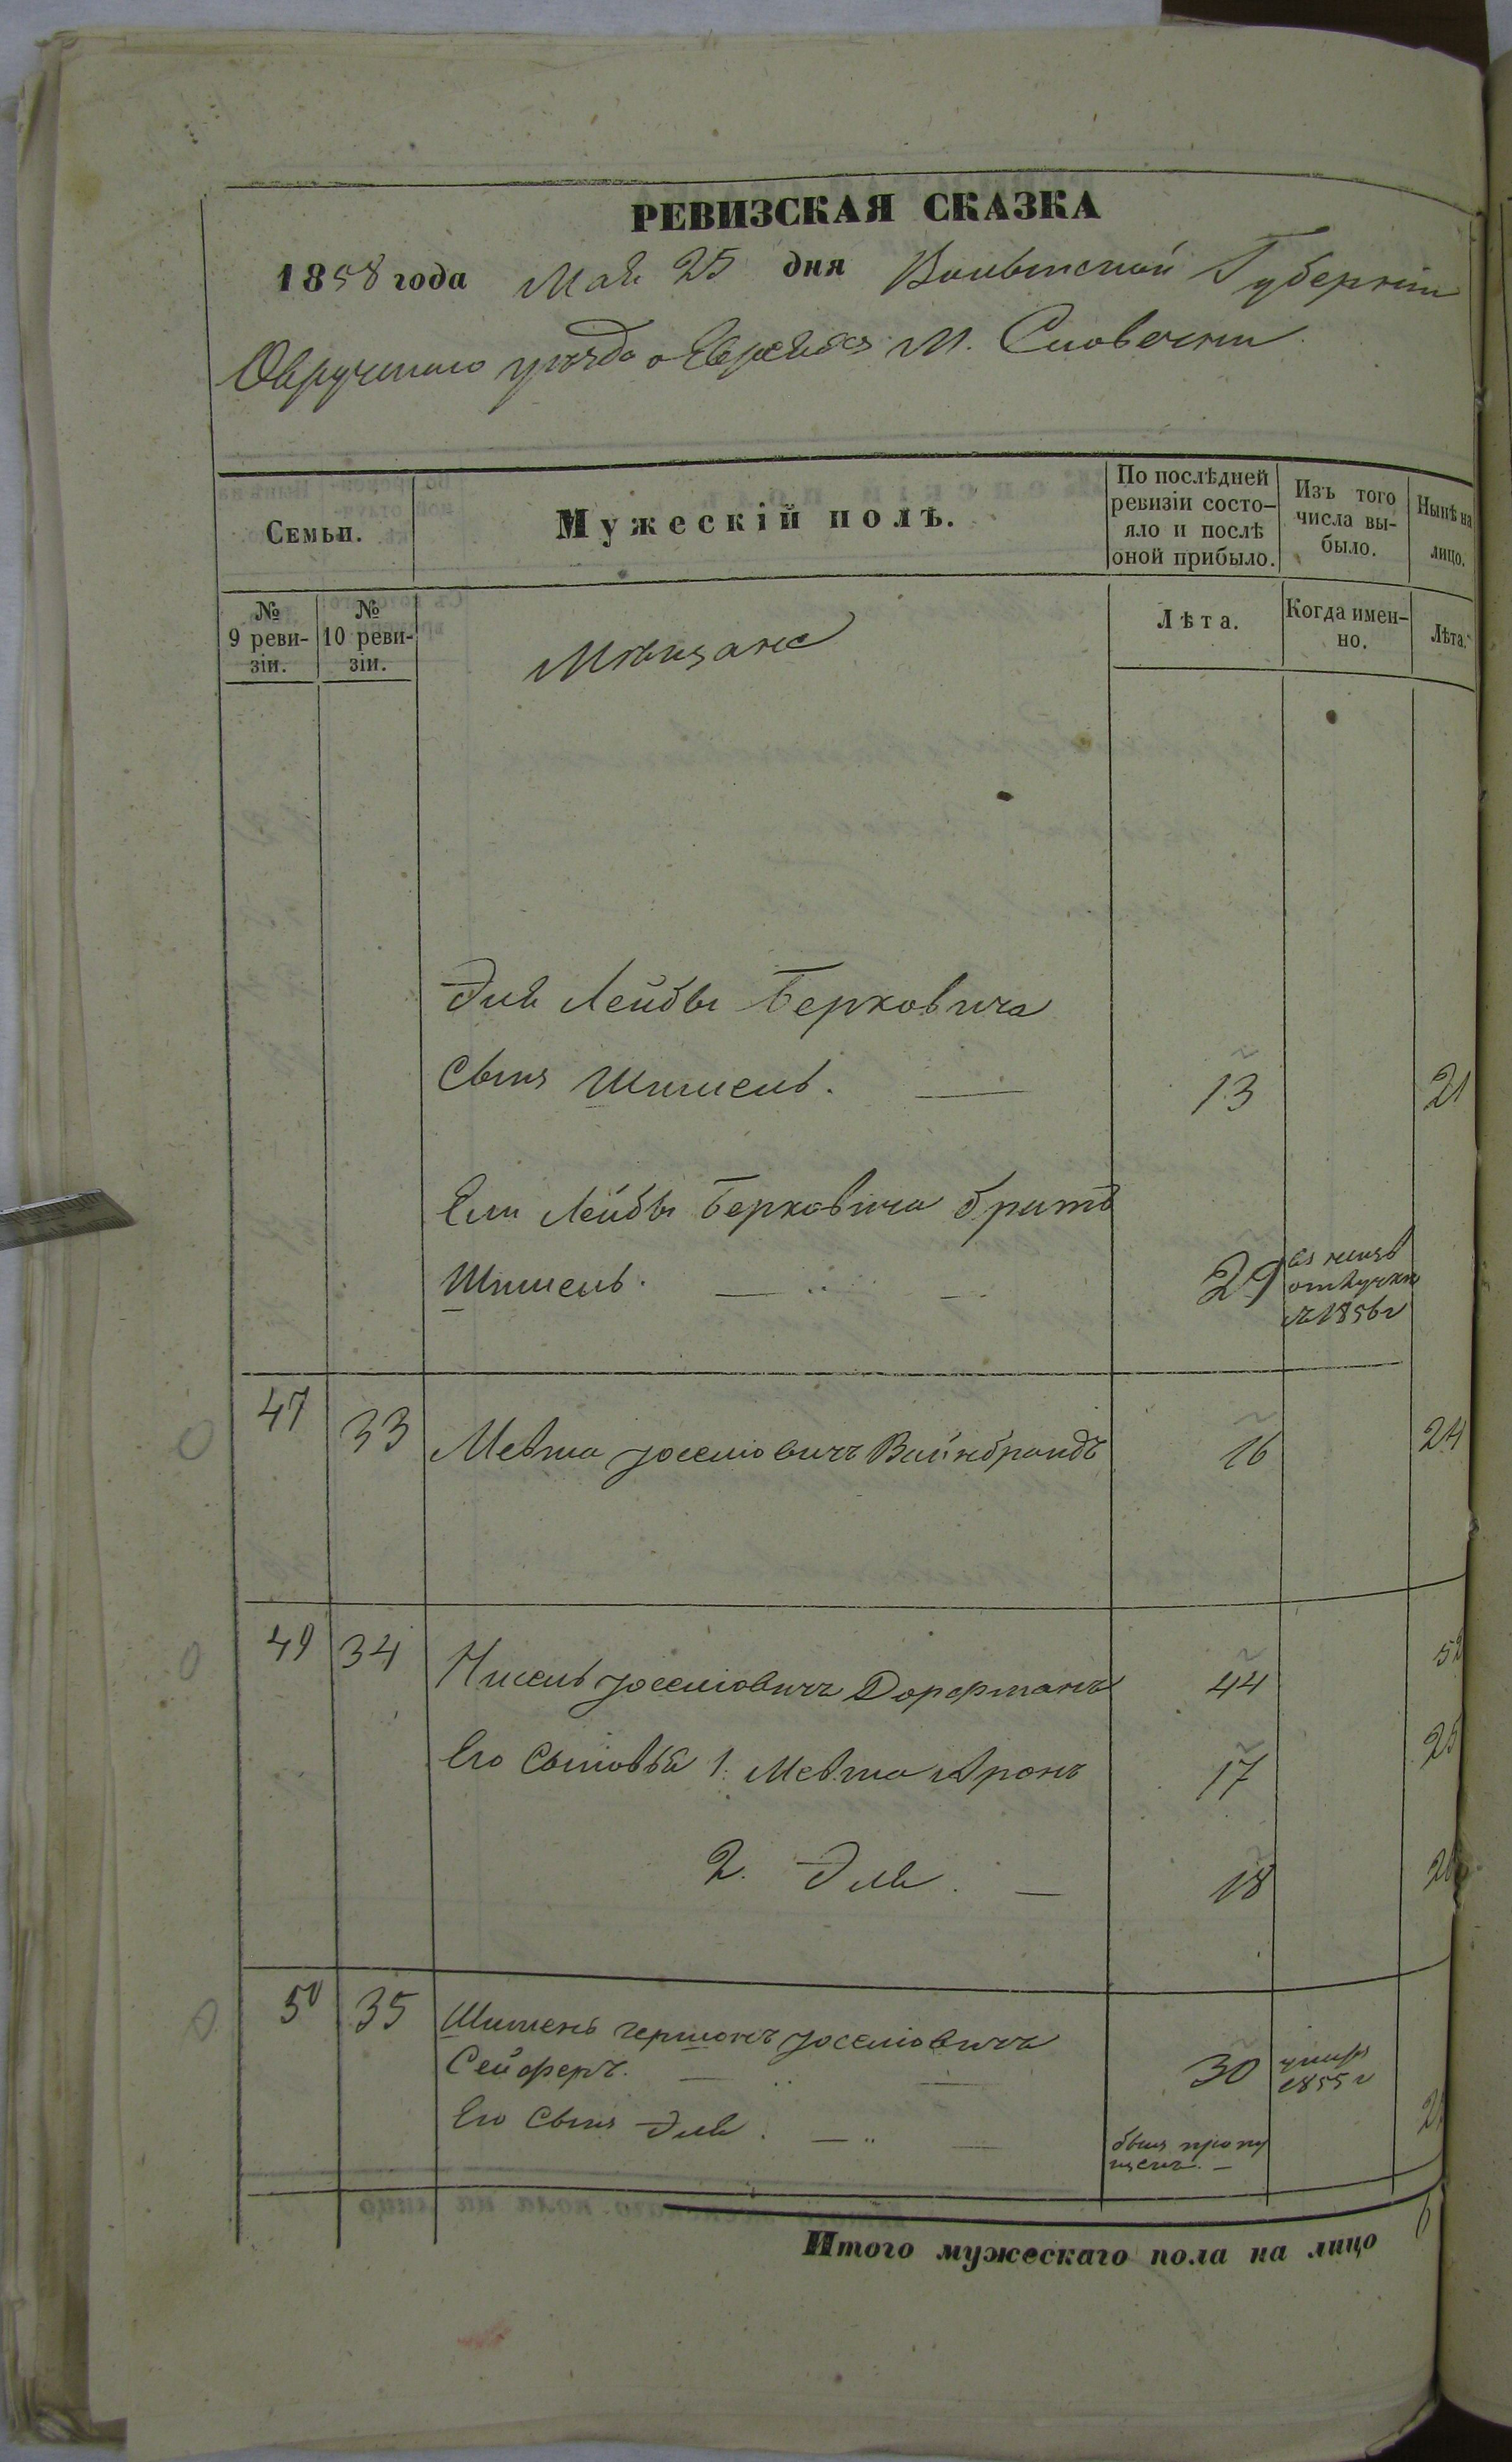 РЕВИЗСКАЯ СКАЗКА
1858 года Мая 25 дня Волынской Губернiи
Овручскаго уѣзда о Евреяхъ М. Словечни
Семьи.
Мужескiй полъ.
По послѣдней ревизiи состо-яло и послѣ оной прибыло.
Изъ того числа вы-было.
Нынѣ на лицо.
№ 9 реви-зiи.
№ 10 реви-зiи.
Мѣщане
Лѣта.
Когда имен-но.
Лѣта.
Эля Лейбы Берковича
Сынъ Шмиель. 13 21
Ели Лейбы Берковича братъ
Шмиель. 29 отлучки 1856 г
47 33 Іоселіовичъ Вайнбрандъ 16 24
49 34 Нисель Іоселіовичъ Дорфманъ 44 52
Его Сыновья 1. Аронъ 17 25
2. Эля. 18
50 35 Гершонъ Іоселіовичъ
Сейферъ. 30 умеръ 1855 г
Его Сынъ Эля. былъ пропущенъ.
Итого мужескаго пола на лицо 6